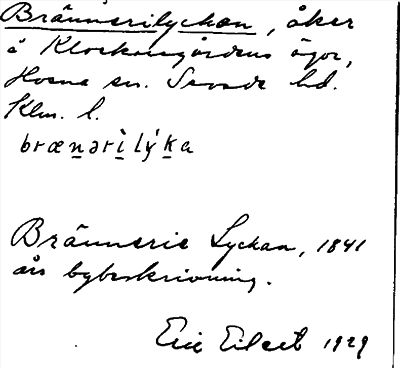 Brännerilyckan, åker
å Klockargårdens ägor,
sn. Sevede hd.
Klm. l.
brænərì lýka
Brännerie Lyckan, 1841
års bybeskrivning.
Eric Eilert 1929